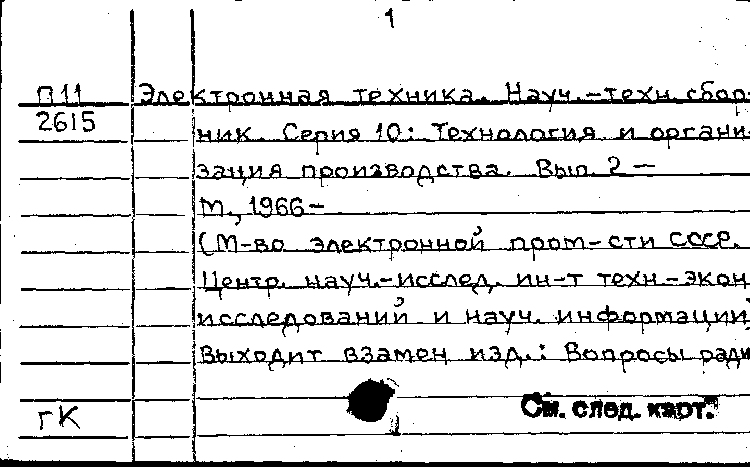 1
П11 Электронная техника. Науч.-техн. сбор-
2615 ник. Серия 10: Технология и органи-
зация производства. Вып. 2 —
М., 1966-
(М-во электронной пром-сти СССР.
Центр. науч.-исслед. ин-т техн.-экон.
исследований и науч. информации)
Выходит взамен изд.: Вопросы ради
гК См. след. карт.